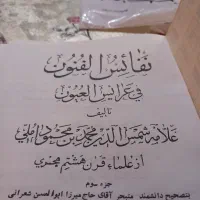 نفائس الفنون
في عرايس العيون
تأليف
علامه شمس الدين محمد بن محمود آملي
از علماء قرن هشتم هجري
جزء سوم
بتصحيح دانشمند متبحر آقاي حاج ميرزا ابوالحسن شعراني